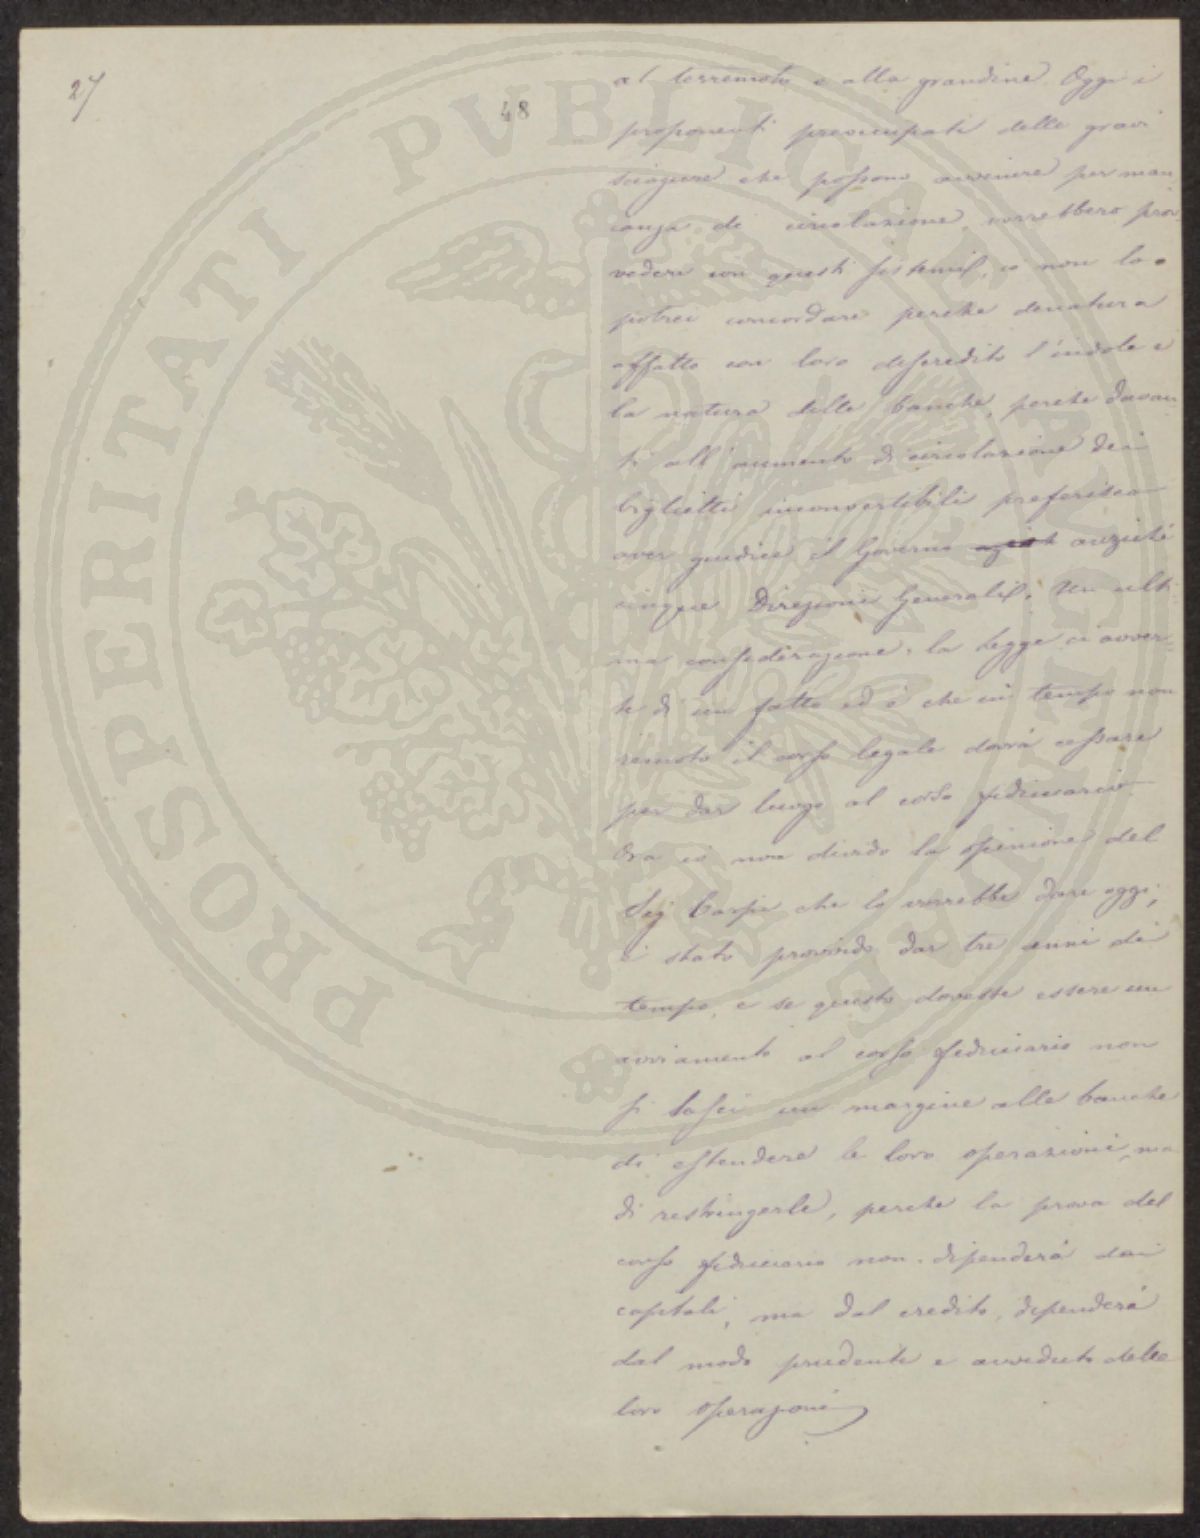 27
48
al terremoto e alla grandine. Oggi i
proponenti preoccupati delle gravi
sciagure che possono avvenire per man
canza di circolazione, vorrebbero prov
vedere con questi sistemi, io non lo
potrei concordare perche denatura
affatto con loro discredito l'indole e
la natura delle banche, perche davan
ti all'aumento di circolazione dei
biglietti inconvertibili preferisco
aver giudice il Governo anziché
cinque Direzioni Generali. Un ulti
ma considerazione: la legge ci avver=
te di un fatto ed è che in tempo non
remoto il corso legale dovrà cessare
per dar luogo al corso fiduciario.
Ora io non divido la opinione del
Sig Carpi che lo vorrebbe dare oggi;
è stato provvido dar tre anni di
tempo, e se questo dovesse essere un
avviamento al corso fiduciario non
si lasci un margine alle banche
di estendere le loro operazioni, ma
di restringerle, perche la prova del
corso fiduciario non dipenderà dai
capitali, ma dal credito, dipenderà
dal modo prudente e avveduto delle
loro operazioni
PROSPERITATI PVBLICAE